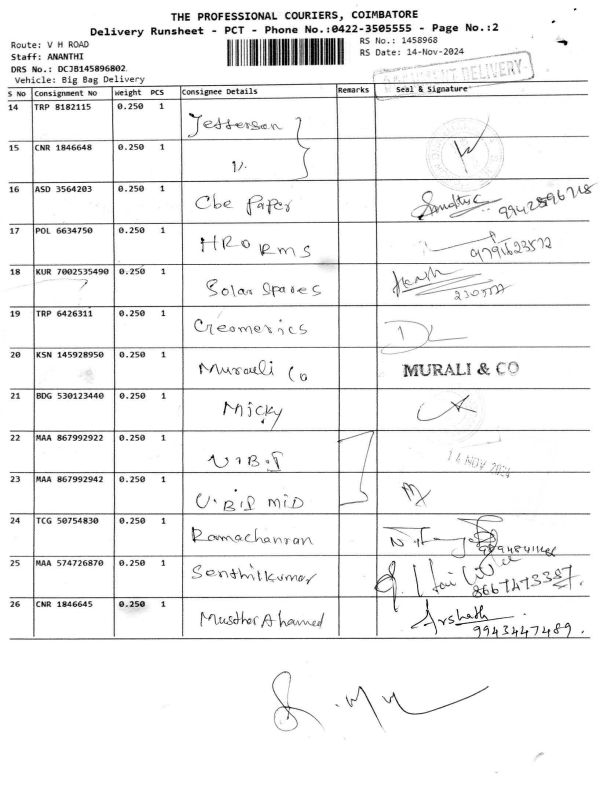 THE PROFESSIONAL COURIERS, COIMBATORE
Delivery Runsheet - PCT - Phone No.:0422-3505555 - Page No.:2
Route: V H ROAD
RS No.: 1458968
Staff: ANANTHI
RS Date: 14-Nov-2024
DRS No.: DCJB145896802
Vehicle: Big Bag Delivery
DELIVERY
S No Consignment No Weight PCS Consignee Details Remarks Seal & Signature
14 TRP 8182115 0.250 1 Jefferson
15 CNR 1846648 0.250 1 1).
16 ASD 3564203 0.250 1 Cbe Paper 9942896718
17 POL 6634750 0.250 1 HRO RMS 9791623572
18 KUR 7002535490 0.250 1 Solar Spares
19 TRP 6426311 0.250 1 Creomerics
20 KSN 145928950 0.250 1 Muraali Co MURALI & CO
21 BDG 530123440 0.250 1 Micky
22 MAA 867992922 0.250 1 U.B.I
14 NOV 2024
23 MAA 867992942 0.250 1 U.B.I MID
24 TCG 50754830 0.250 1 Ramachanran
25 MAA 574726870 0.250 1 Senthilkumar 8667473387
26 CNR 1846645 0.250 1 Musthar Ahamed Arshath
9943447489.